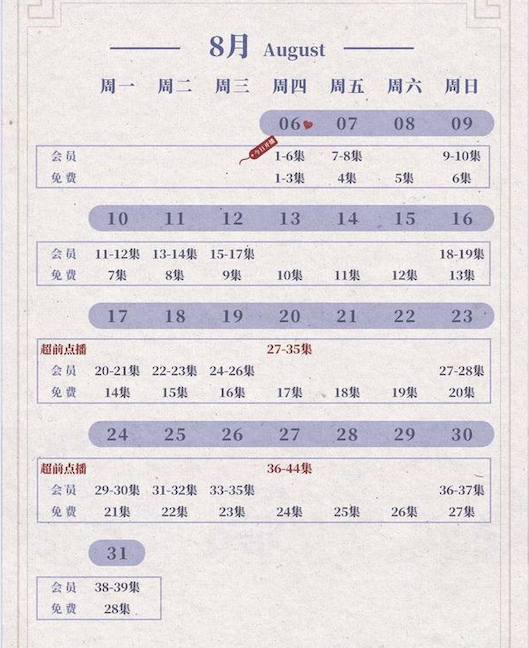 8月 August
周一 周二 周三 周四 周五 周六 周日
06 07 08 09
今日开播
会员 1-6集 7-8集 9-10集
免费 1-3集 4集 5集 6集
10 11 12 13 14 15 16
会员 11-12集 13-14集 15-17集 18-19集
免费 7集 8集 9集 10集 11集 12集 13集
17 18 19 20 21 22 23
超前点播 27-35集
会员 20-21集 22-23集 24-26集 27-28集
免费 14集 15集 16集 17集 18集 19集 20集
24 25 26 27 28 29 30
超前点播 36-44集
会员 29-30集 31-32集 33-35集 36-37集
免费 21集 22集 23集 24集 25集 26集 27集
31
会员 38-39集
免费 28集